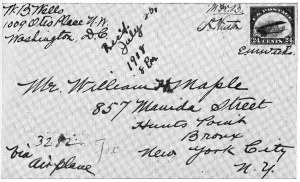 W. B. Wells
1009 Otis Place N.W.
Washington, D.C.
Rec'd
July
1918
8 Pm
U.S. POSTAGE
24 CENTS 24
Mr. William H. Maple
857 Manida Street
Hunts Point
Bronx
New York City
N.Y.
Via
Airplane